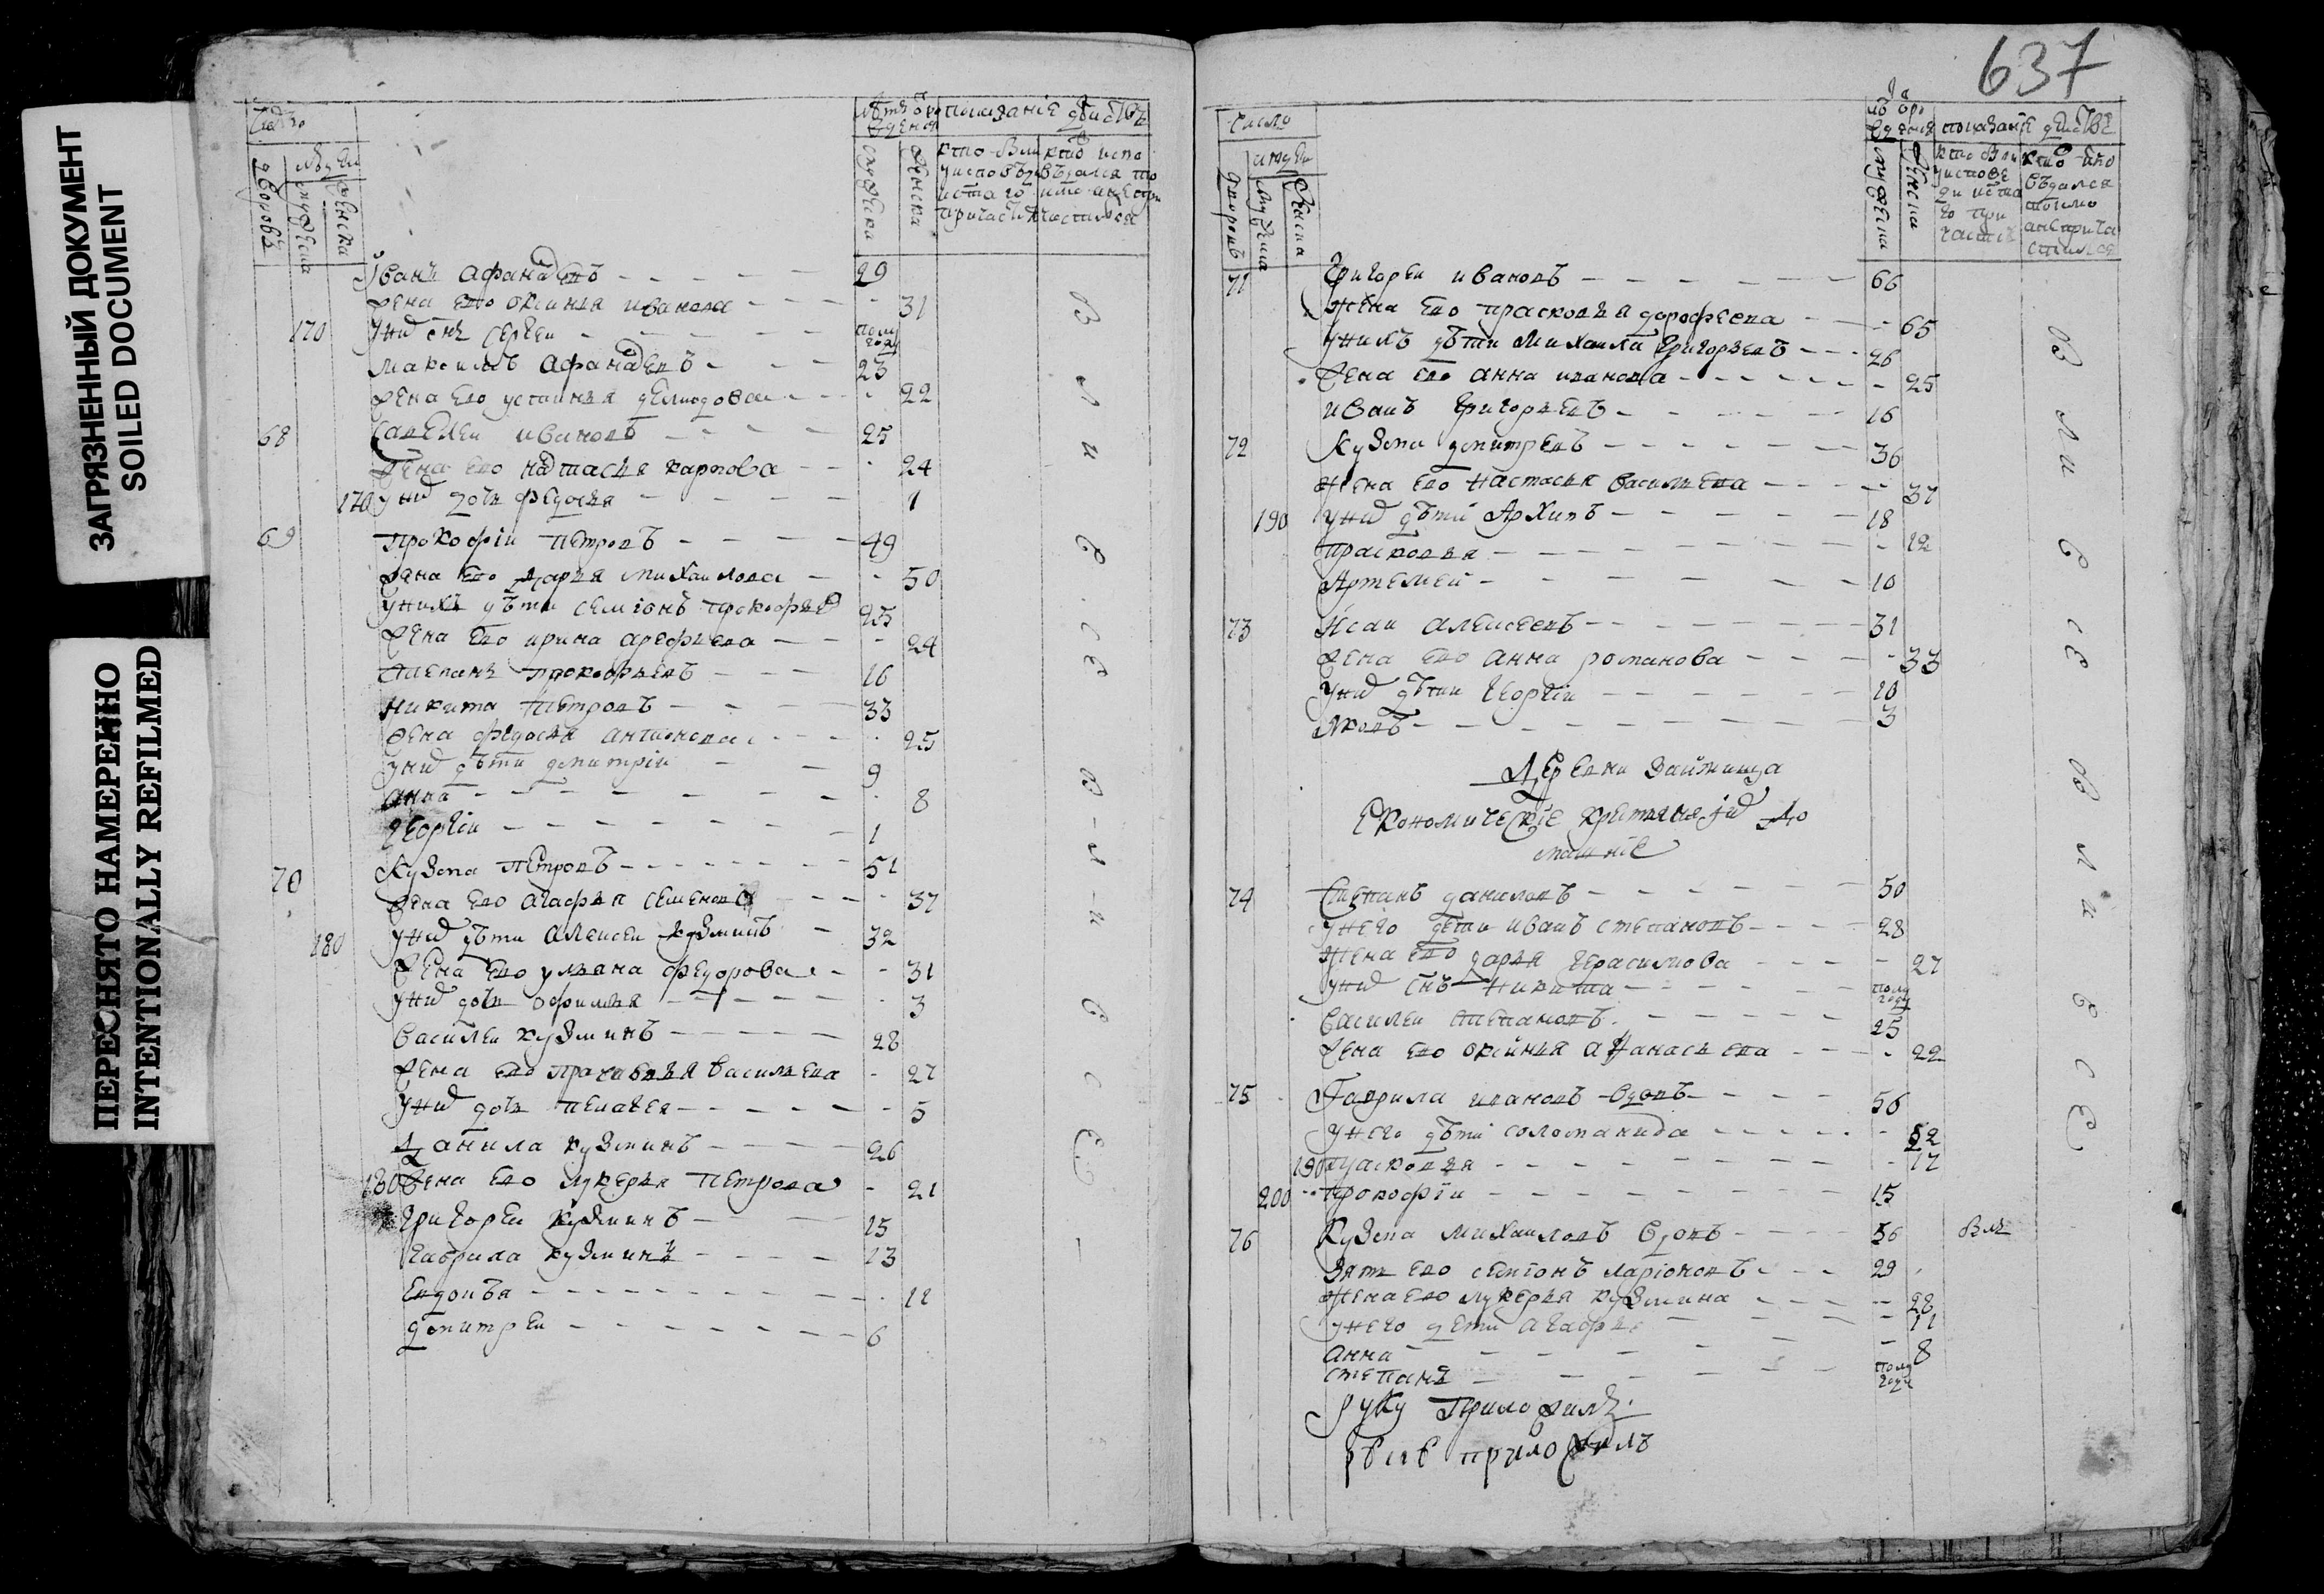 ЗАГРЯЗНЕННЫЙ ДОКУМЕНТ
SOILED DOCUMENT
ПЕРЕСНЯТО НАМЕРЕННО
INTENTIONALLY REFILMED
Число
дворовъ
мужеска
женска
показание действъ
мужеска
женска
Иванъ Афанасевъ 29
жена ево Оксинья иванова 31
170 У них снъ Сергеи полу году
Максимъ Афанасевъ 23
жена ево устинья 22
68 Савелеи ивановъ 25
жена ево настасья карпова 24
170 у них дочь федосья 1
69 Прокофiи петровъ 49
жена ево дарья михаилова 50
у нихъ дѣти семiонъ прокофьев 25
жена ево ирина арефьева 24
степанъ прокофьевъ 16
Никита петровъ 33
жена федосья 25
у них дѣти дмитрiи 9
анна 8
Георгiи 1
70 Кузма петровъ 51
жена ево агафья семенова 37
180 у них дѣти Алексеи кузминъ 32
жена ево ульяна федорова 31
у них дочь офимья 3
василеи кузминъ 28
жена ево прасковья васильева 27
у них дочь пелагея 5
Данила кузминъ 26
180 жена ево лукерья петрова 21
Григореи кузминъ 15
Гаврила кузминъ 13
Евдокѣя 12
дмитреи 6
В ли В се В ли В се
637
Число
дворовъ
мужеска
женска
показание действъ
мужеска
женска
71 Григореи ивановъ 66
жена ево прасковья дорофеева 65
у нихъ дѣти Михаила Григорьевъ 26
жена ево анна иванова 25
иванъ Григорьевъ 16
72 Кузма дмитревъ 36
жена ево настасья васильева 37
190 у них дѣти Архипъ 18
прасковья 12
Артемеи 10
73 Исаи алексеевъ 31
жена ево анна романова 33
у них дѣти Георгiи 10
Яковъ 3
Деревни Займища
Економическiе крестьяня и их до
машнiе
74 Степанъ даниловъ 50
у него дети иванъ степановъ 28
жена ево дарья герасимова 27
у них снъ никита полу году
василеи степановъ 25
жена ево оксинья афанасьева 22
75 Гаврила ивановъ вдовъ 56
у него дѣти соломанида 22
190 прасковья 17
200 прокофiи 15
76 Кузма михаиловъ вдовъ 56
зять ево семионъ ларiоновъ 29
жена ево лукерья кузмина 28
у него дети агафья 11
анна 8
степанъ полу году
В ли В се В ли В се
руку приложилъ
приложилъ